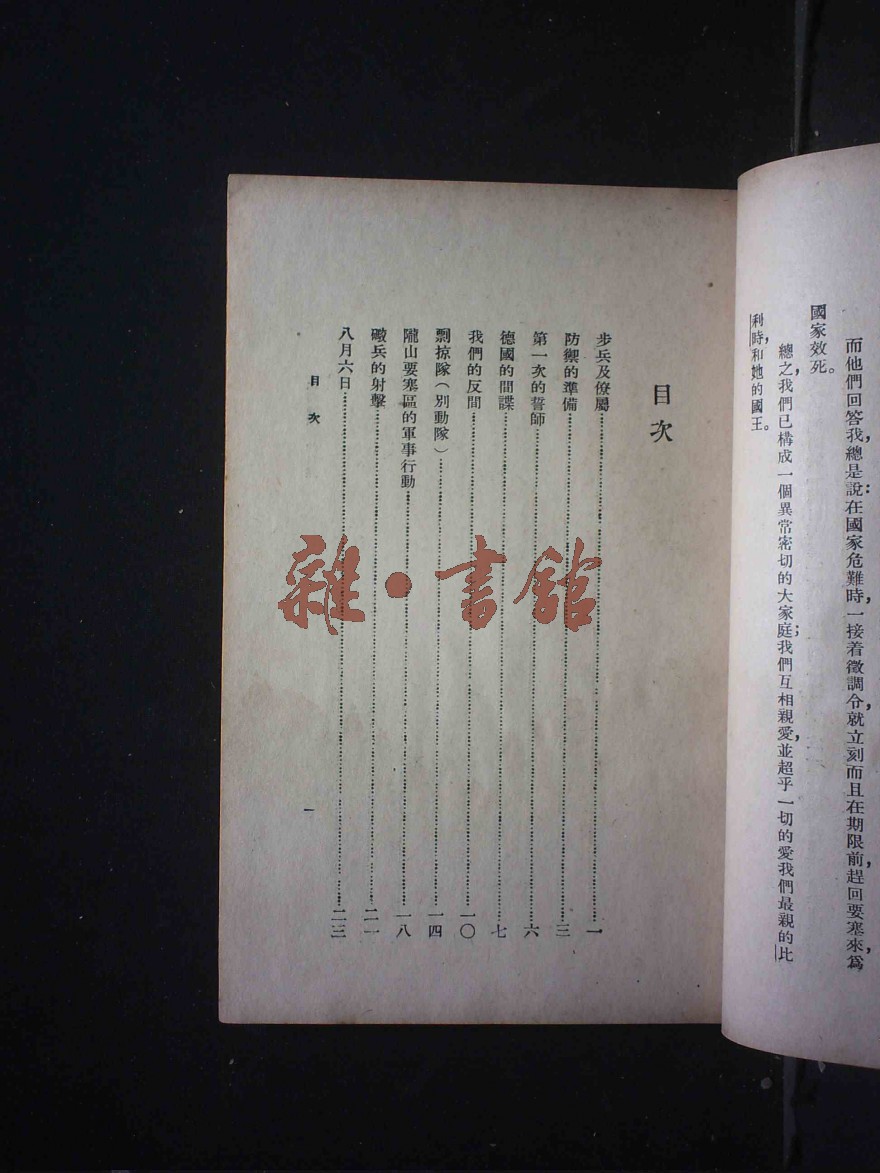 而他們回答我，總是說：在國家危難時，一接着徵調令，就立刻而且在期限前，趕回要塞來，爲
國家效死。
總之，我們已構成一個異常密切的大家庭；我們互相親愛，並超乎一切的愛我們最親的比
利時，和她的國王。
目次
步兵及僚屬…一
防禦的準備…三
第一次的誓師…六
德國的間諜…七
我們的反間…一〇
剽掠隊（別動隊）…一四
隴山要塞區的軍事行動…一八
礮兵的射擊…二一
八月六日…二三
目次
一
雜·書館